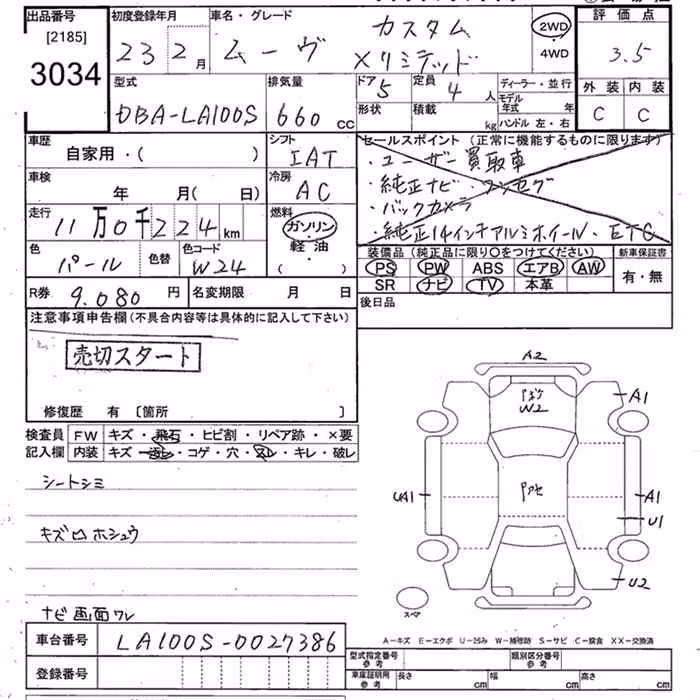 出品番号 初度登録年月 車名・グレード カスタム 2WD 評価点
[2185] 23 2月 ムーヴ Xリミテッド 4WD 3.5
3034
型式 排気量 ドア 定員 ディーラー・並行 外装 内装
DBA-LA100S 660CC 5 4人 モデル年式 年 C C
形状 積載 kg ハンドル 左・右
車歴 シフト セールスポイント(正常に機能するものに限ります)
自家用・( ) IAT ・ユーザー買取車
車検 冷房 ・純正ナビ・ワンセグ
年 月( 日) AC ・バックカメラ
走行 燃料 ・純正14インチアルミホイール・ETC
11万0千224km ガソリン
軽油
・( )
色 色替 色コード 装備品(純正品に限り○をつけてください) 新車保証書
パール W24 PS PW ABS エアB AW 有・無
SR ナビ TV 本革
R券 9.080円 名変期限 月 日 後日品
注意事項申告欄(不具合内容等は具体的に記入して下さい)
売切スタート
修復歴 有 〔箇所 〕
検査員 FW キズ・飛石・ヒビ割・リペア跡・×要
記入欄 内装 キズ・コゲ・穴・スレ・キレ・破レ
シートシミ
キズ凹ホシュウ
ナビ画面ワレ
A2
W2
A1
UA1
A1
U1
U2
スペア
A-キズ E-エクボ U-凹み W-補修跡 S-サビ C-腐食 XX-交換済
車台番号 LA100S-0027386
登録番号
型式指定番号 参考 類別区分番号 参考
車庫証明用 参考 長さ cm 幅 cm 高さ cm